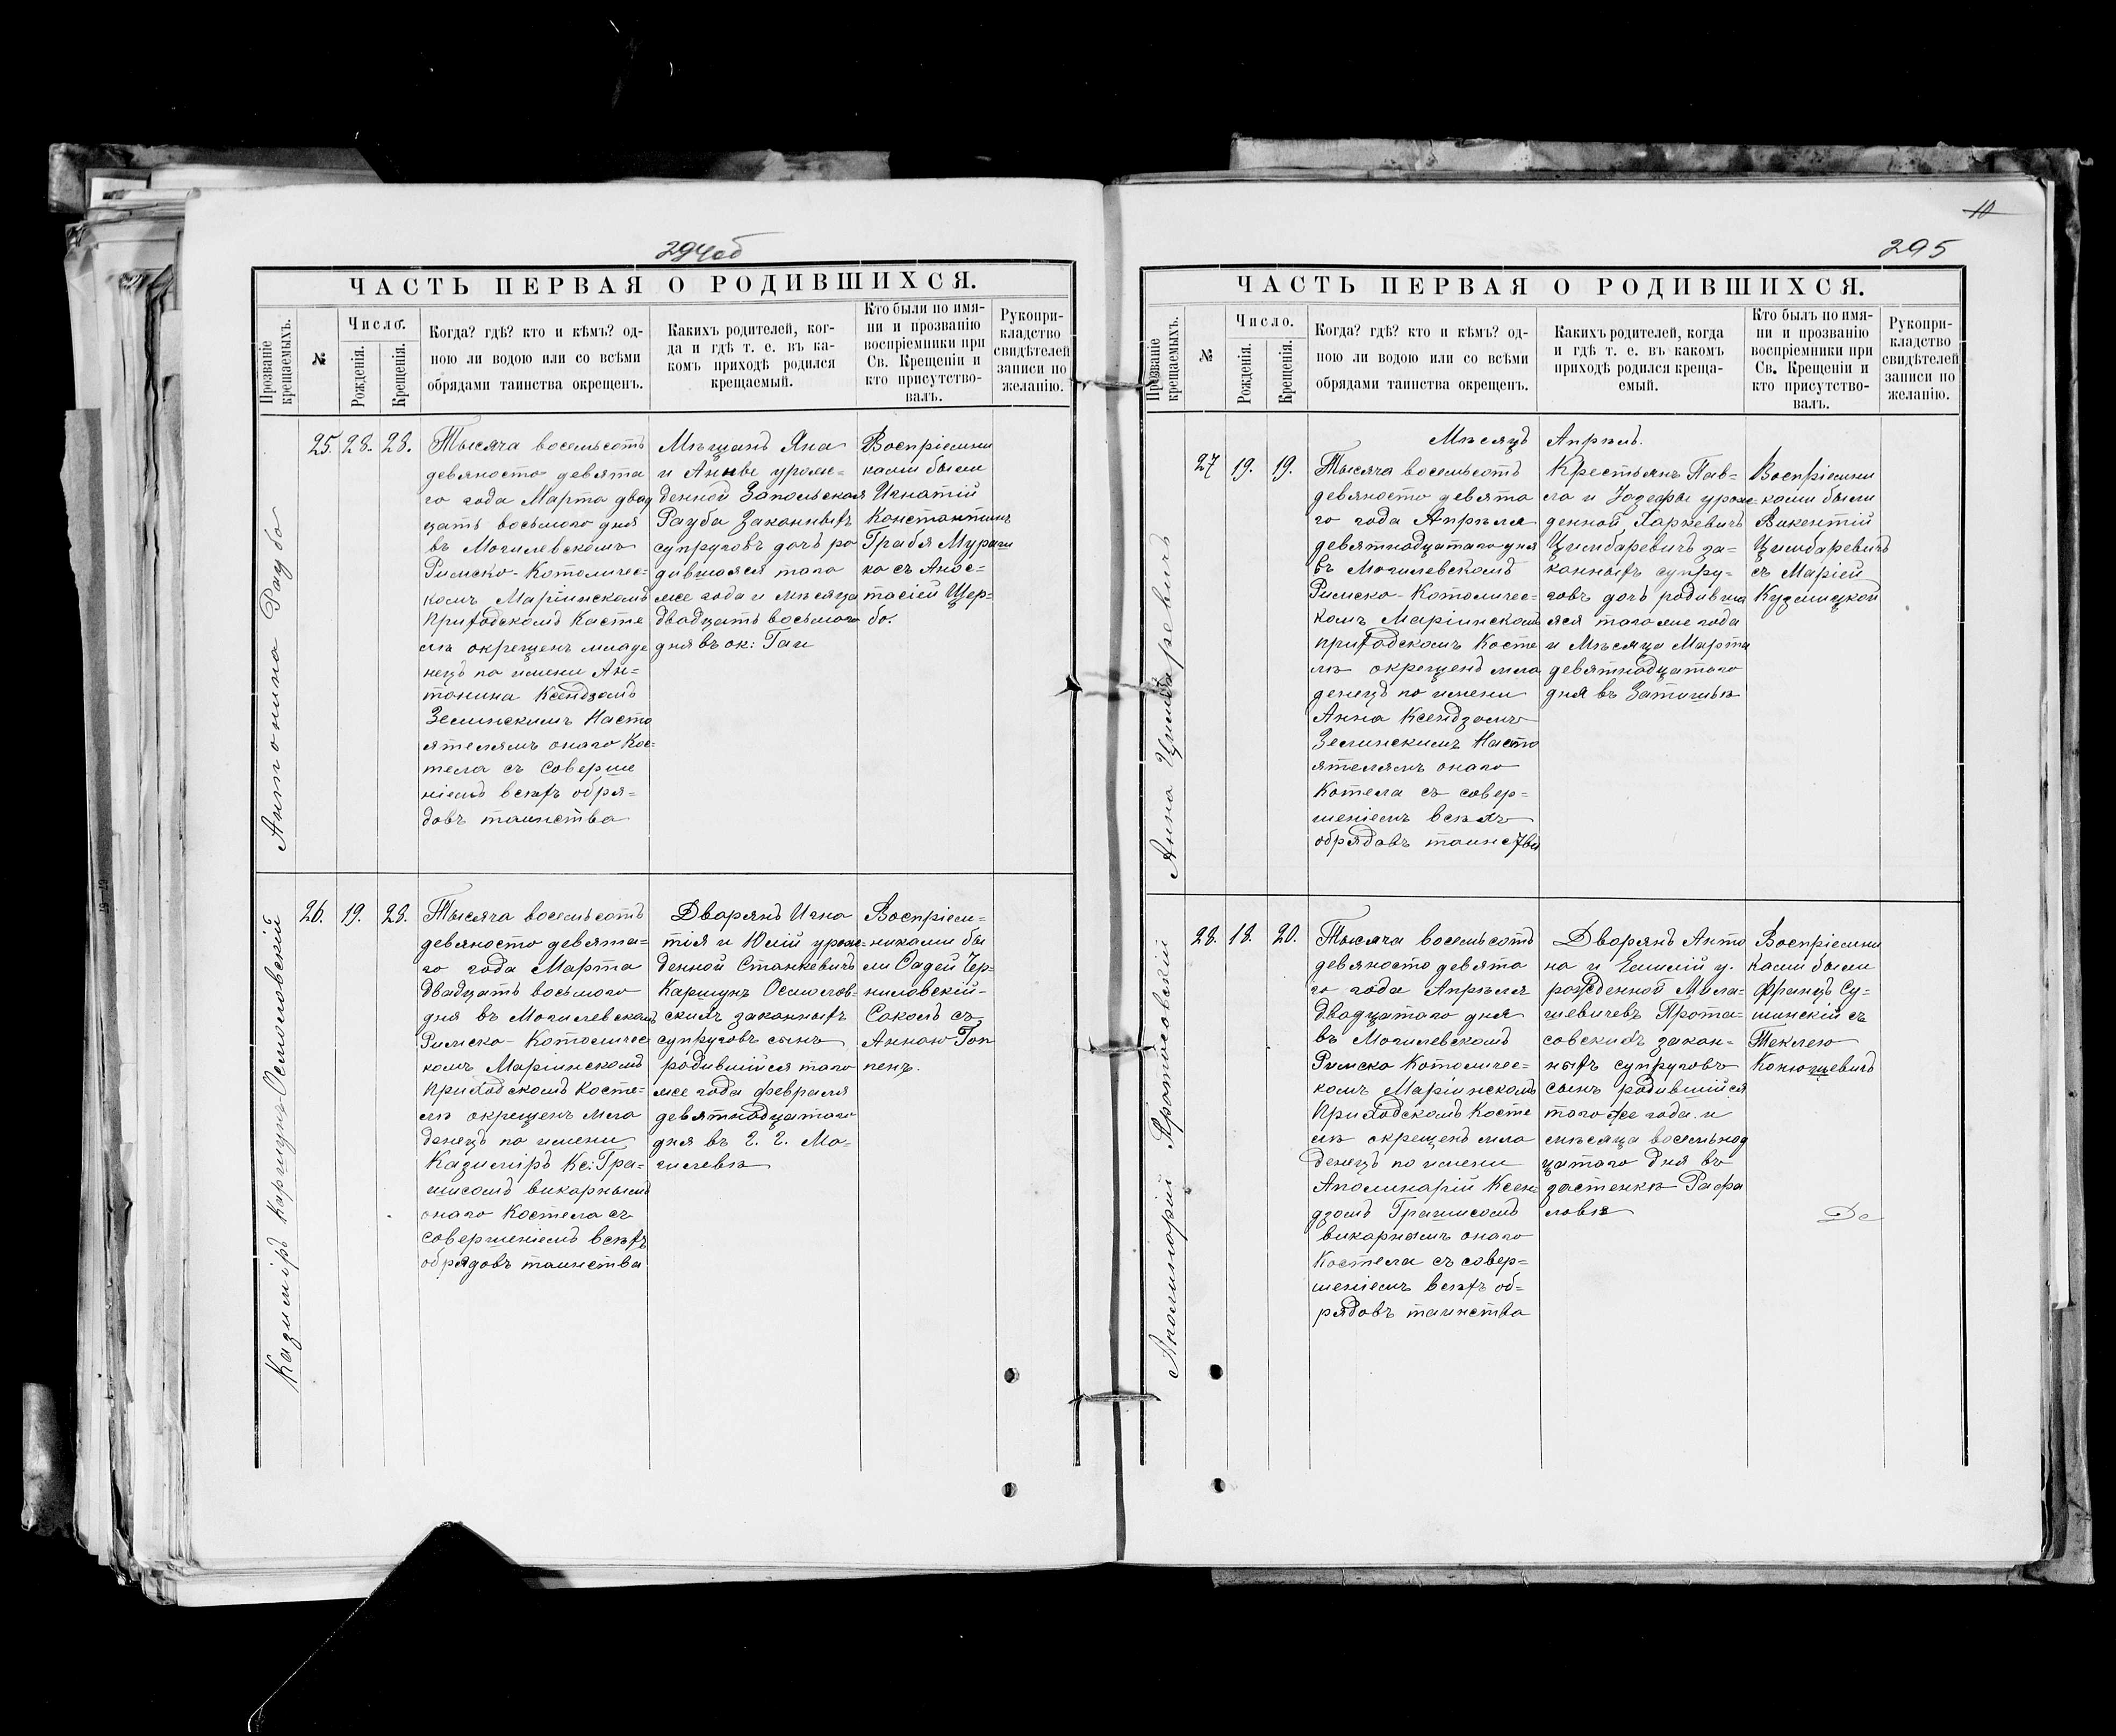 294об
ЧАСТЬ ПЕРВАЯ О РОДИВШИХСЯ.
Прозваніе крещаемыхъ.
№
Число.
Рожденія.
Крещенія.
Когда? гдѣ? кто и кѣмъ? од-
ною ли водою или со всѣми
обрядами таинства окрещенъ.
Какихъ родителей, ког-
да и гдѣ т. е. въ ка-
комъ приходѣ родился
крещаемый.
Кто были по имя-
ни и прозванію
воспріемники при
Св. Крещеніи и
кто присутство-
валъ.
Рукопри-
кладство
свидѣтелей
записи по
желанію.
Антонина Рауба
25. 28. 28.
Тысяча восемьсотъ
девяносто девята
го года Марта двад
цать восьмого дня
въ Могилевскомъ
Римско-Католичес-
комъ Маріинскомъ
Приходскомъ Косте
лѣ окрещенъ младе
нецъ по имени Ан-
тонина Ксендзомъ
Зелинскимъ Насто
ятелямъ онаго Кос-
тела съ соверше
ніемъ всѣхъ обря-
довъ таинства
Мѣщанъ Яна
и Анны урож-
денной Запольская
Рауба законныхъ
супруговъ дочь ро
дившаяся того
же года и мѣсяца
двадцать восьмого
дня въ ок: Гаи
Воспріемни
ками были
Игнатій
Константинъ
Грабя Мураш
ко съ Анас-
тасіей Щер-
бо.
Казиміръ Каршунъ-Осмоловскій
26. 19. 28.
Тысяча восемьсотъ
девяносто девята-
го года Марта
двадцать восьмого
дня въ Могилевскомъ
Римско-Католичес
комъ Маріинскомъ
Приходскомъ Косте-
лѣ окрещенъ мла
денецъ по имени
Казиміръ Кс: Гра-
жисомъ викарнымъ
онаго Костела съ
совершеніемъ всѣхъ
обрядовъ таинства
Дворянъ Игна
тія и Юлій урож-
денной Станкевичъ
Каршунъ Осмолов-
скихъ законныхъ
супруговъ сынъ
родившійся того
же года февраля
девятнадцатаго
дня въ г. г. Мо-
гилевѣ
Воспріем-
никами бы
ли Фадей Чер-
ниловскій-
Соколъ съ
Анною Гоп
пенъ.
10
295
ЧАСТЬ ПЕРВАЯ О РОДИВШИХСЯ.
Прозваніе крещаемыхъ.
№
Число.
Рожденія.
Крещенія.
Когда? гдѣ? кто и кѣмъ? од-
ною ли водою или со всѣми
обрядами таинства окрещенъ.
Какихъ родителей, когда
и гдѣ т. е. въ какомъ
приходѣ родился креща-
емый.
Кто былъ по имя-
ни и прозванію
воспріемники при
Св. Крещеніи и
кто присутство-
валъ.
Рукопри-
кладство
свидѣтелей
записи по
желанію.
Мѣсяцъ Апрѣль.
Анна Цимбаревичъ
27 19. 19.
Тысяча восемьсотъ
девяносто девята
го года Апрѣля
девятнадцатаго дня
въ Могилевскомъ
Римско-Католичес-
комъ Маріинскомъ
приходскомъ Косте
лѣ окрещенъ мла
денецъ по имени
Анна Ксендзомъ
Зелинскимъ Насто
ятелямъ онаго
Котела съ совер-
шеніемъ всѣхъ
обрядовъ таинства
Крестьянъ Пав-
ла и Іозефы урож-
денной Харкевичъ
Цимбаревичъ за-
конныхъ супру-
говъ дочь родивша
яся того же года
и Мѣсяца Марта
девятнадцатаго
дня въ Затишьѣ
Воспріемни
ками были
Викентій
Цимбаревичъ
съ Маріей
Кузмицкой
Аполинарій Протасовскій
28. 18. 20.
Тысяча восемьсотъ
девяносто девята
го года Апрѣля
двадцатаго дня
въ Могилевскомъ
Римско Католичес-
комъ Маріинскомъ
Приходскомъ Косте
лѣ окрещенъ мла
денецъ по имени
Аполинарій Ксен-
дзомъ Гражисомъ
викарнымъ онаго
Костела съ совер-
шеніемъ всѣхъ об-
рядовъ таинства
Дворянъ Анто
на и Емилій у-
рожденной Мила-
шевичевъ Прота-
совскихъ закон-
ныхъ супруговъ
сынъ родившійся
того же года и
мѣсяца восемьнад
цатаго дня въ
застенкѣ Рафа
ловѣ
Воспріемни
ками были
Францъ Су-
шинскій съ
Теклею
Конюшевичъ
Дс